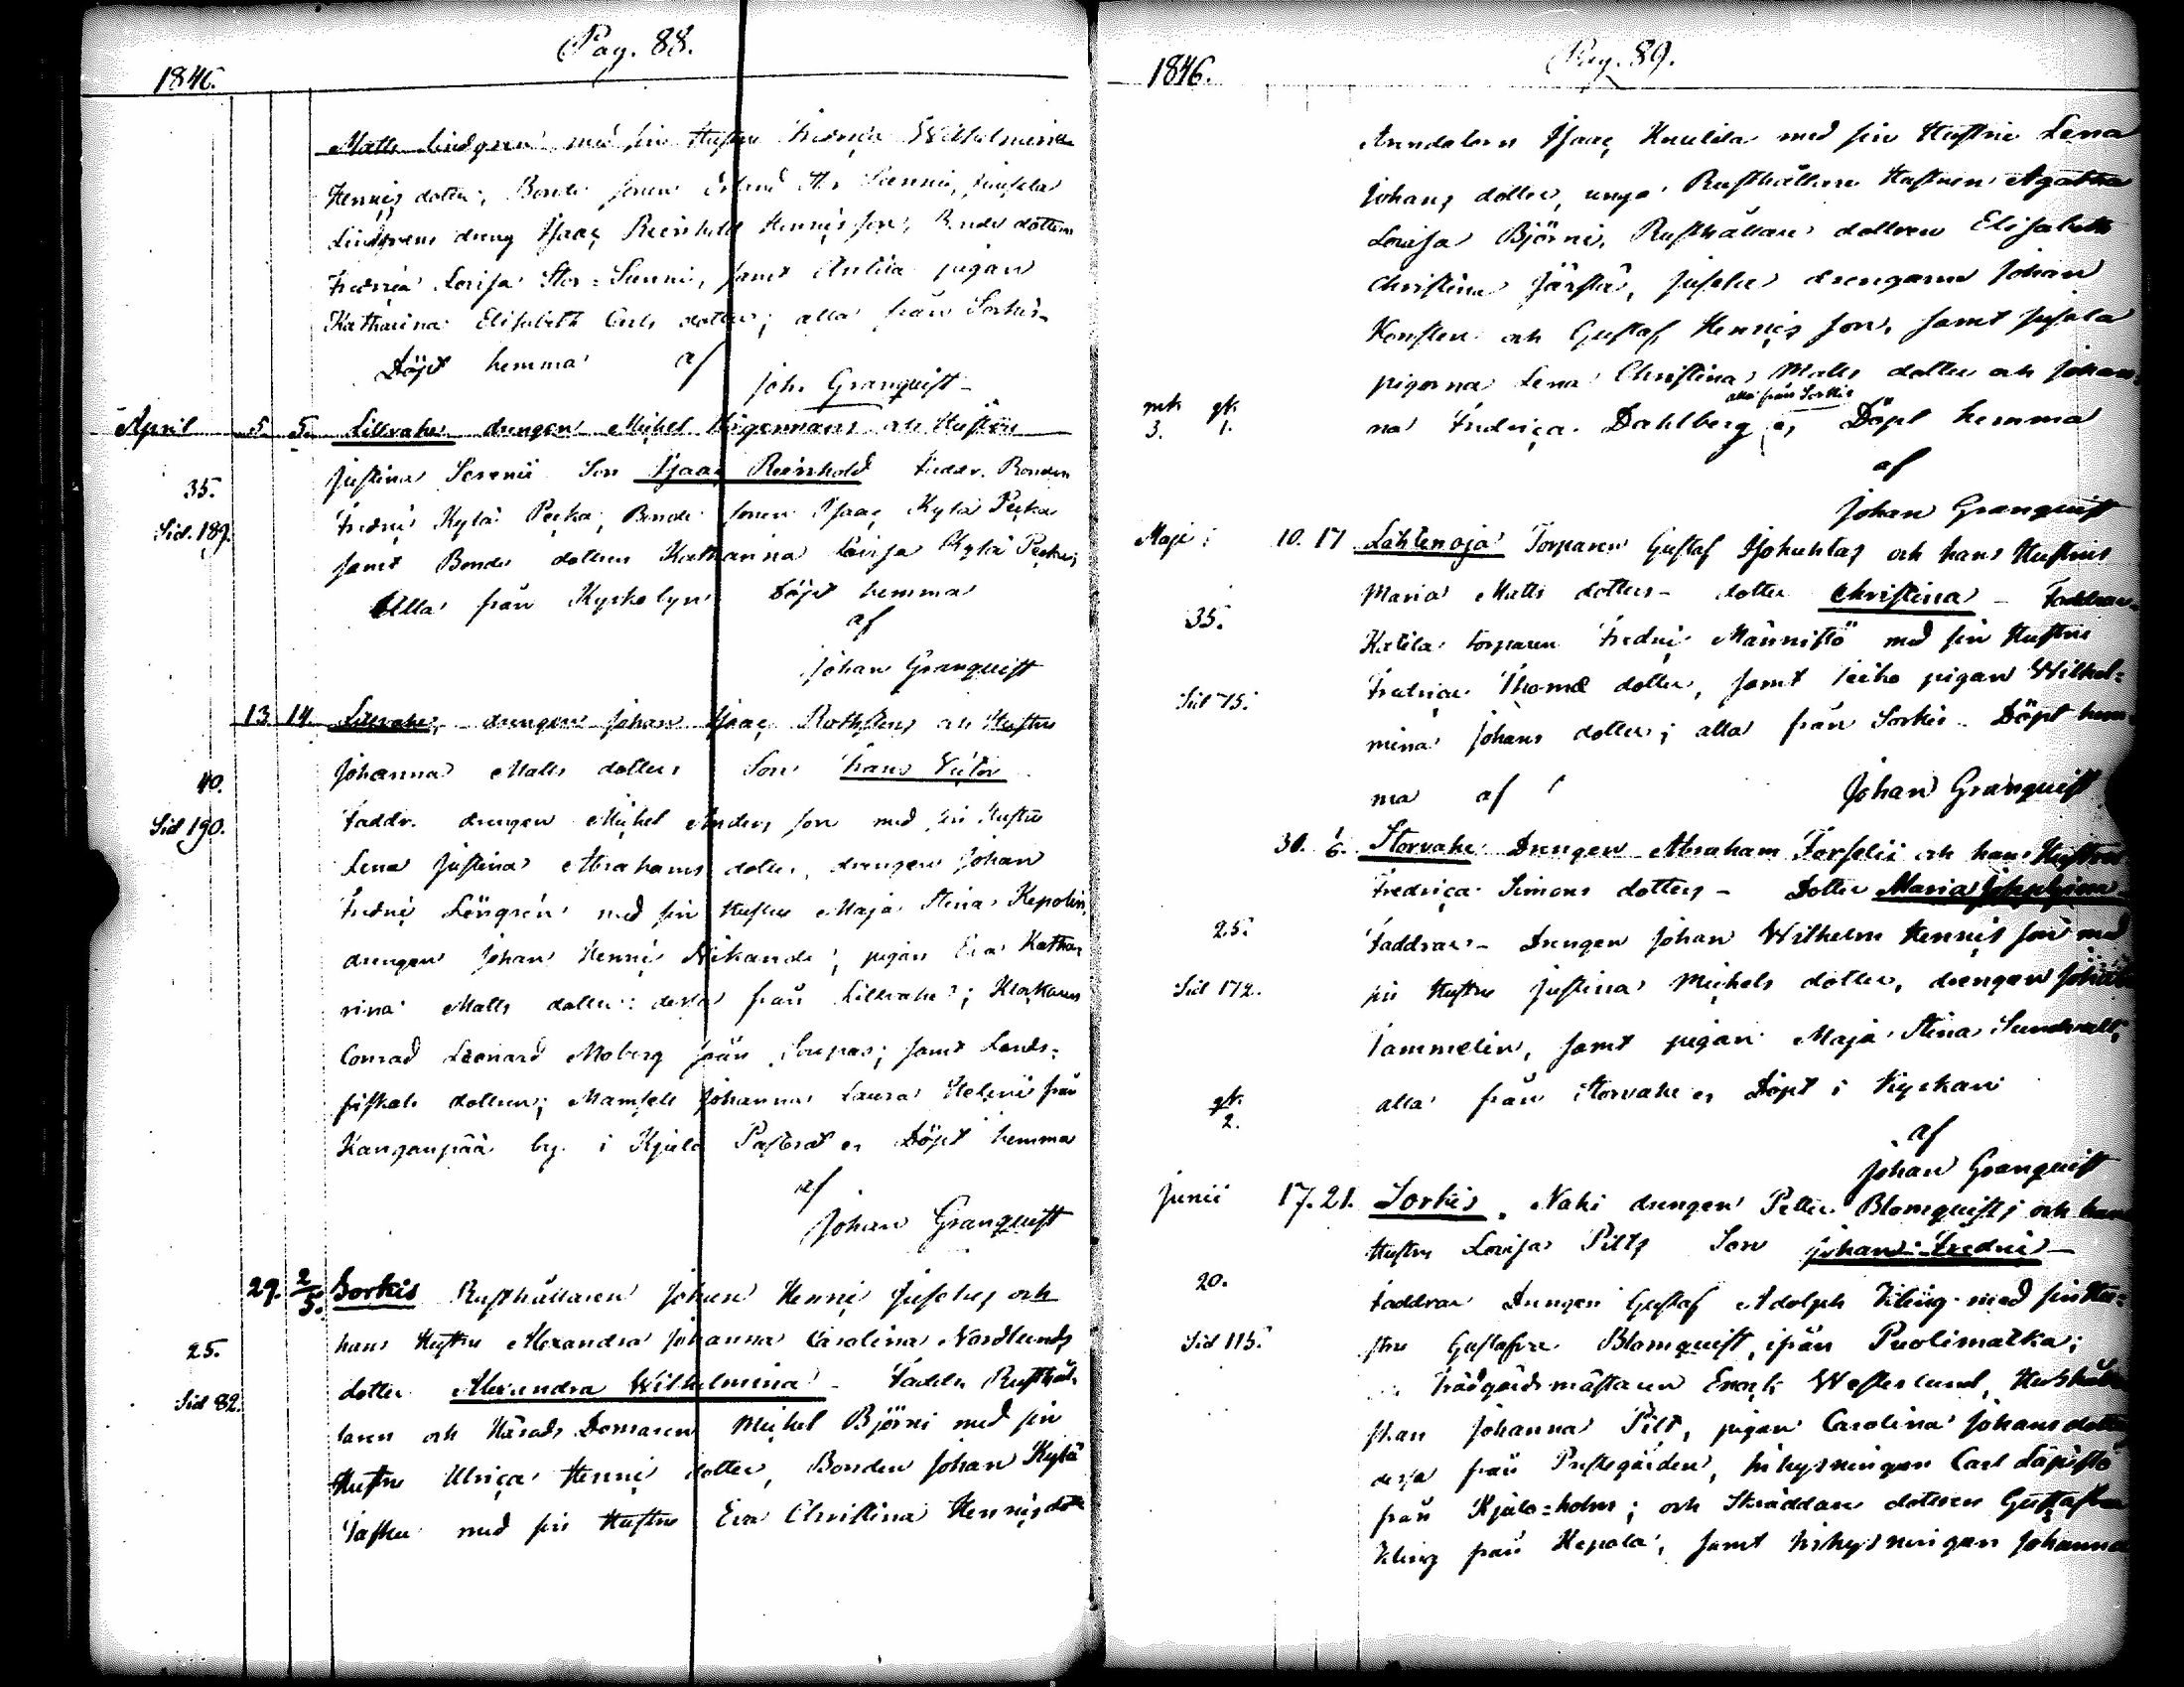 Pag. 88.
1846.
Matts Lindgren med sin Hustru Fredrica Wilhelmina
Henrics dotter, Bonde sonen Erland St. Sunni, Jussila
Lindgrens dreng Isaac Reinhold Henrics son, Bonde dottern
Fredrica Lovisa Stor-Sunni, samt Anttila pigan
Katharina Elisabeth Carls dotter; alla från Sorkis.
Döpt hemma af
Joh. Granquist
April 5. 5. Lillvahe drengen Michel Hirgermans och Hustru
Justina Serenii Son Isaac Reinhold Faddr. Bonden
35.
Fredric Kylä Pecka, Bonde sonen Isaac Kylä Pecka
Sid. 189.
samt Bonde dottern Katharina Lovisa Kylä Pecka;
Alla från Kyrkobyn Döpt hemma
af
Johan Granquist
13. 14. Lillvahe, drengen Johan Isaac Rothstens och Hustru
Johanna Matts dotters Son Frans Victor
40.
Faddr. drengen Michel Anders son med sin Hustru
Sid 190.
Lena Justina Abrahams dotter, drengen Johan
Fredric Löngren med sin Hustru Maja Stina Kepolin,
drengen Johan Henric Nikander, pigan Eva Katha-
rina Matts dotter: dessa från Lillvahe; Klockaren
Conrad Leonard Moberg från; samt Lands-
fiskals dottren; Mamsell Johanna Laura Helenii från
Kanganpää by i Kjulo Pastorat er Döpt hemma
af
Johan Granquist
29. 2/5. Sorkis Rusthållaren Johan Henric Juselius och
hans Hustru Alexandra Johanna Carolina Nordlunds
25.
dotter Alexandra Wilhelmina - Faddr. Rusthål-
Sid 82.
laren och Härads Domaren Michel Björni med sin
Hustru Ulrica Henrics dotter, Bonden Johan Kylä
Pasku med sin Hustru Eva Christina Henrics dott
Pag. 89.
1846.
Arendatorn Isaac Knuutila med sin Hustru Lena
Johans dotter, unga Rusthållare Hustrun Agatha
Lovisa Björni, Rusthållare dottren Elisabeth
Christina Järstä, Jussila drengarne Johan
Konsten och Gustaf Henrics son, samt Jussila
pigorna Lena Christina Matts dotter och Johan-
alla från Sorkis
mk gk
3. 1.
na Fredrica Dahlberg er Döpt hemma
af
Johan Granquist
Maji: 10. 17 Lähtenoja Torparen Gustaf Isokuhtas och hans Hustrus
Maria Matts dotters - dotter Christina - Faddrar.
35.
Katila torparen Fredric Männistö med sin Hustru
Fredrica Thomæ dotter, samt pigan Wilhel-
Sid 75.
mina Johans dotter; alla från Sorkis. Döpt hem-
ma af Johan Granquist
30. 1/6. Storvahe Drengen Abraham Forselii och hans Hustrus
Fredrica Simons dotters - Dotter Maria Josephina
25.
Faddrar - Drengen Johan Wilhelm Henrics son med
Sid 172.
sin Hustru Justina Michels dotter, drengen Johan
Tammelin, samt pigan Maja Stina Sundvall;
gk.
2.
alla från Storvahe er Döpt i Kyrkan
af
Johan Granquist
Junii 17. 21. Sorkis. Naki drengen Petter Blomquists och hans
Hustru Lovisa Piltz Son Johan Fredric -
20.
Faddrar Drengen Gustaf Adolph Viking med sin Hu-
Sid 115.
stru Gustafva Blomquist, ifrån Puolimatka;
Trädgårdsmästaren Enock Westerlund, Hushåller-
skan Johanna Pilt, pigan Carolina Johans dotter
dessa från Prestegården, Inhysningen Carl Läpistö
från Kjulo-holm; och Skräddare dottren Gustafva
Viking från Hepola, samt Inhysningen Johanna